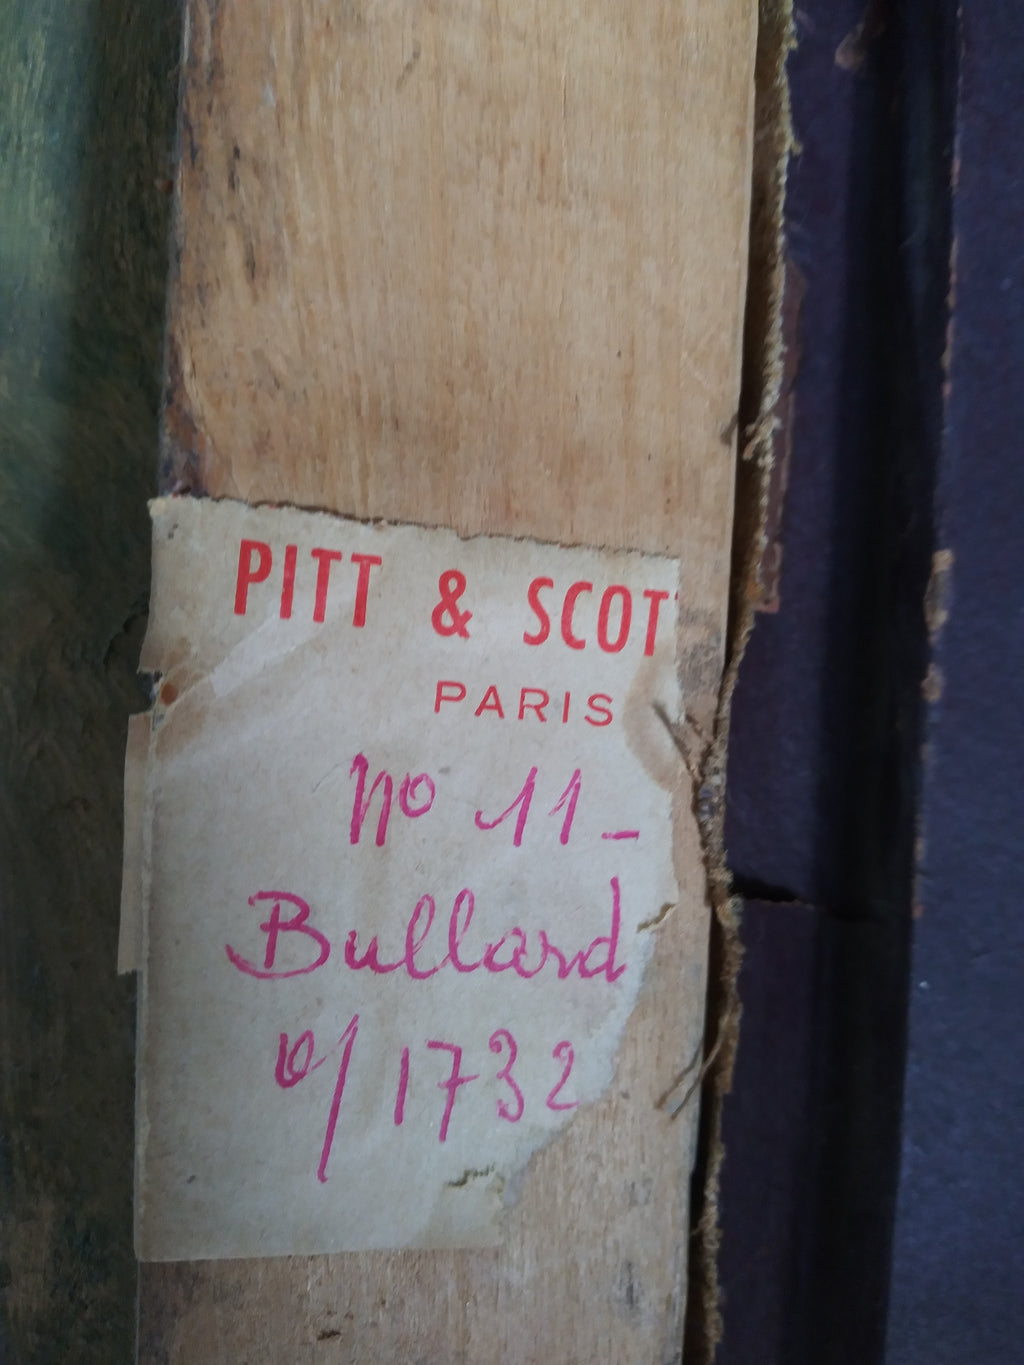 PITT & SCOT
PARIS
No 11-
Bullard
o/ 1732